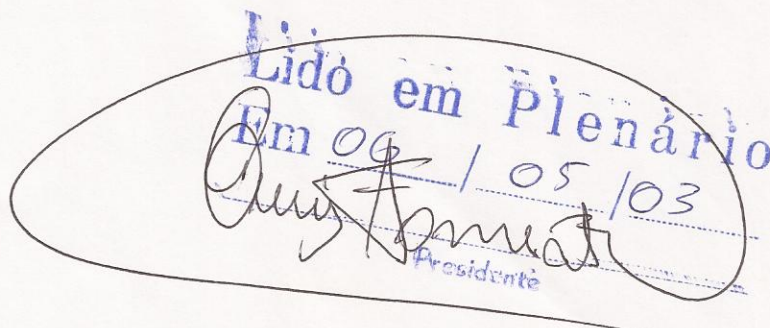 Lido em Plenário
Em 06 / 05 / 03
Presidente